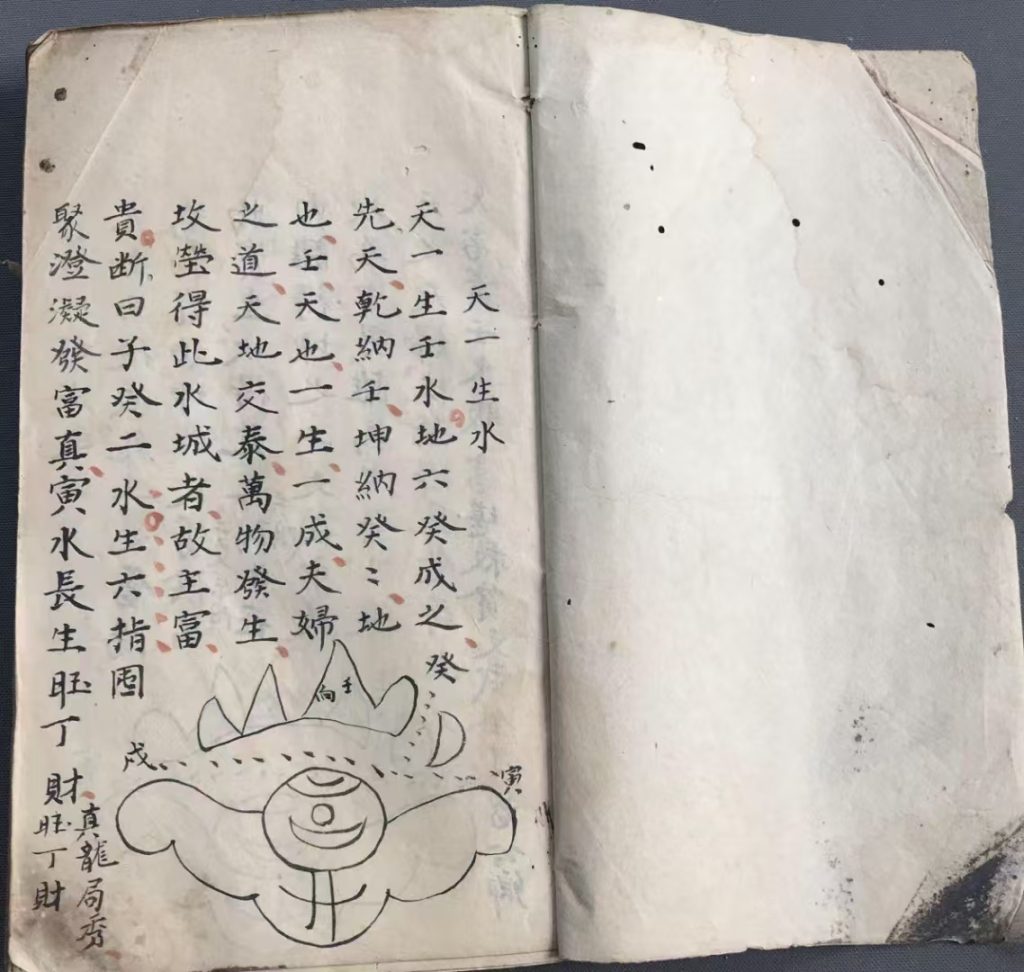 天一生水
天一生壬水地六癸成之
先天乾納壬坤納癸〻地
也壬天也一生一成夫婦
之道天地交泰萬物發生
坟瑩得此水城者故主富
貴断曰子癸二水生六指囤
聚澄凝發富真寅水長生旺丁財
真龍局秀
旺丁財
癸
向壬
戍
寅